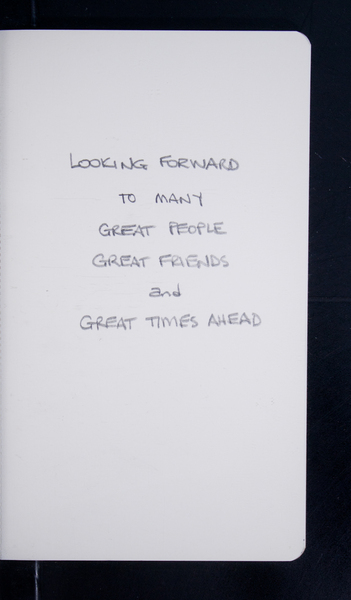 LOOKING FORWARD
TO MANY
GREAT PEOPLE
GREAT FRIENDS
and
GREAT TIMES AHEAD